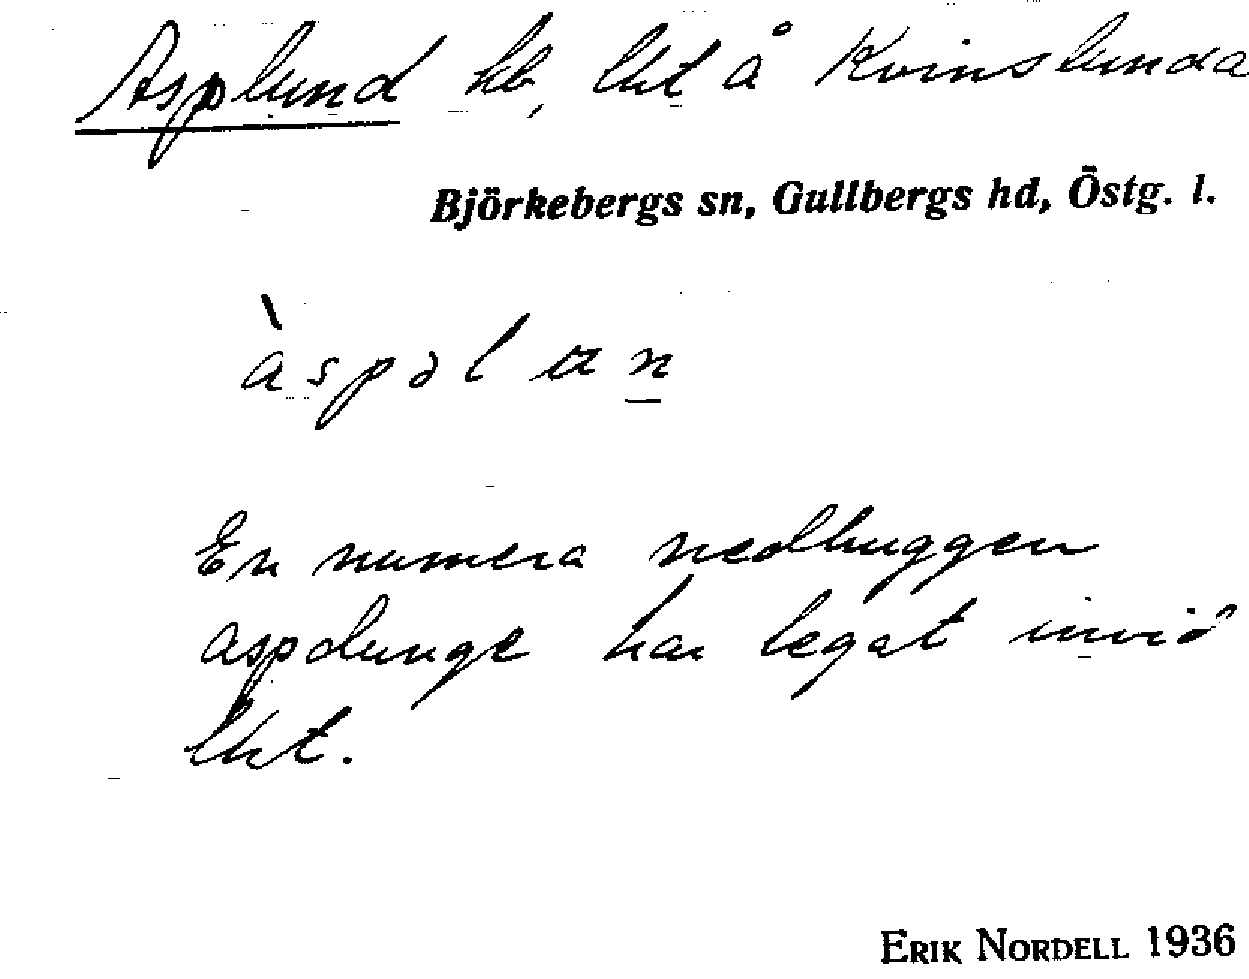 Asplund hb, lht å Kvinslunda
Björkebergs sn, Gullbergs hd, Östg. l.
àspəlun
En numera nedhuggen
aspdunge har legat invid
lht.
ERIK NORDELL 1936